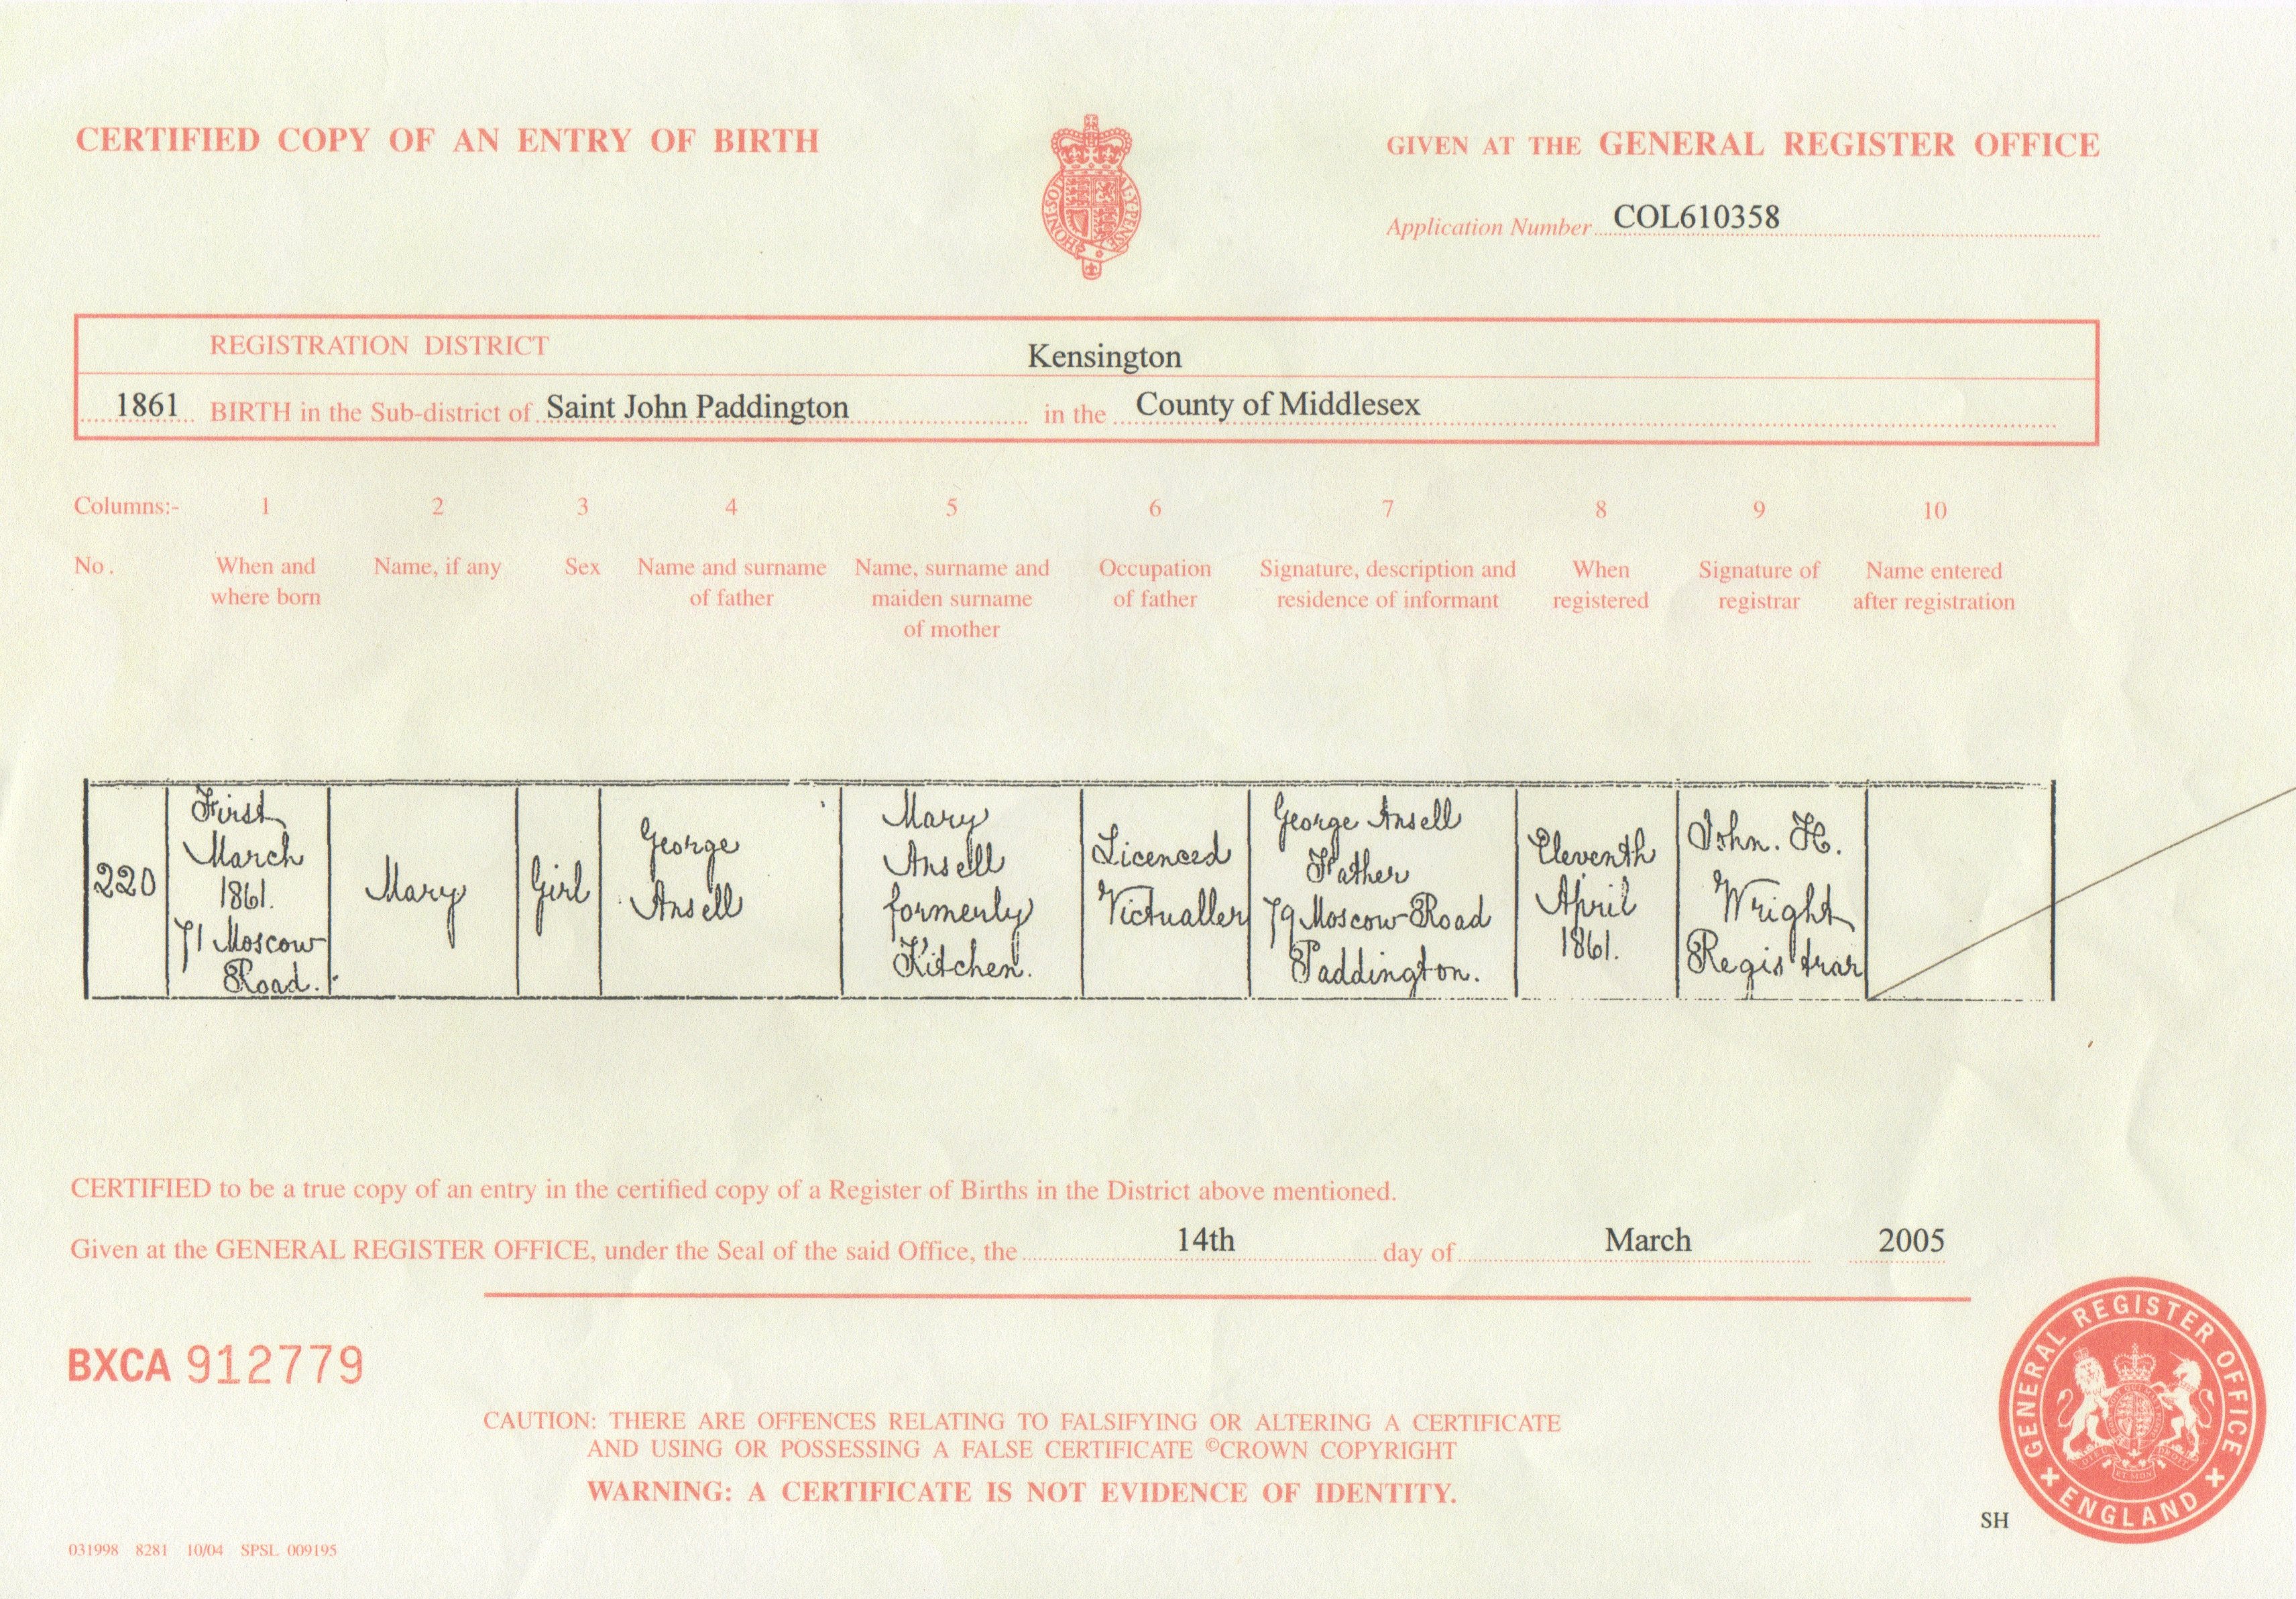 CERTIFIED COPY OF AN ENTRY OF BIRTH
GIVEN AT THE GENERAL REGISTER OFFICE
HONI·SOI
AL·Y·PENSE
Application Number COL610358
REGISTRATION DISTRICT Kensington
1861 BIRTH in the Sub-district of Saint John Paddington in the County of Middlesex
Columns:- 1 2 3 4 5 6 7 8 9 10
No. When and where born
Name, if any
Sex
Name and surname of father
Name, surname and maiden surname of mother
Occupation of father
Signature, description and residence of informant
When registered
Signature of registrar
Name entered after registration
220
First
March
1861.
71 Moscow
Road.
Mary
Girl
George
Ansell
Mary
Ansell
formerly
Kitchen.
Licenced
Victualler
George Ansell
Father
79 Moscow Road
Paddington.
Eleventh
April
1861.
John. H.
Wright
Registrar
CERTIFIED to be a true copy of an entry in the certified copy of a Register of Births in the District above mentioned.
Given at the GENERAL REGISTER OFFICE, under the Seal of the said Office, the 14th day of March 2005
BXCA 912779
CAUTION: THERE ARE OFFENCES RELATING TO FALSIFYING OR ALTERING A CERTIFICATE
AND USING OR POSSESSING A FALSE CERTIFICATE ©CROWN COPYRIGHT
WARNING: A CERTIFICATE IS NOT EVIDENCE OF IDENTITY.
GENERAL REGISTER OFFICE
ENGLAND
SH
031998 8281 10/04 SPSL 009195